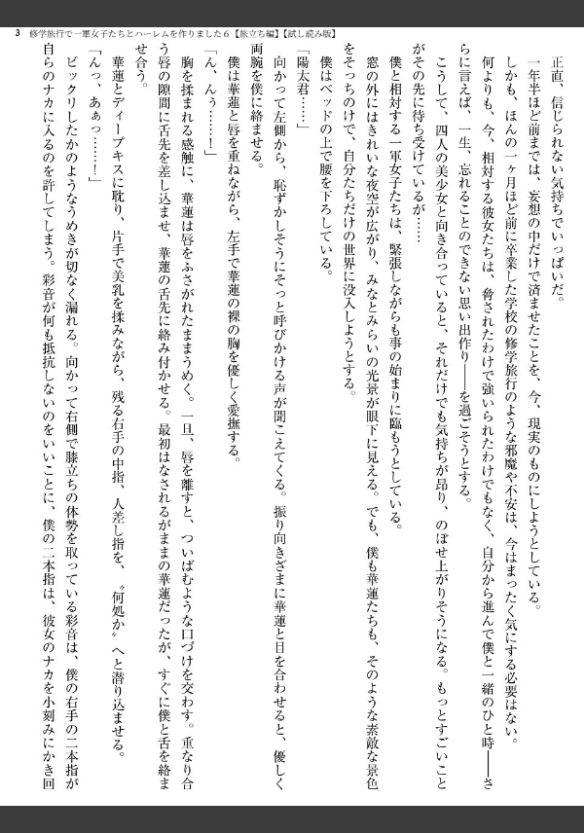 3 修学旅行で一軍女子たちとハーレムを作りました６【旅立ち編】【試し読み版】
正直、信じられない気持ちでいっぱいだ。
一年半ほど前までは、妄想の中だけで済ませたことを、今、現実のものにしようとしている。
しかも、ほんの一ヶ月ほど前に卒業した学校の修学旅行のような邪魔や不安は、今はまったく気にする必要はない。
何よりも、今、相対する彼女たちは、脅されたわけで強いられたわけでもなく、自分から進んで僕と一緒のひと時――さ
らに言えば、一生、忘れることのできない思い出作り――を過ごそうとする。
こうして、四人の美少女と向き合っていると、それだけでも気持ちが昂り、のぼせ上がりそうになる。もっとすごいこと
がその先に待ち受けているが……
僕と相対する一軍女子たちは、緊張しながらも事の始まりに臨もうとしている。
窓の外にはきれいな夜空が広がり、みなとみらいの光景が眼下に見える。でも、僕も華蓮たちも、そのような素敵な景色
をそっちのけで、自分たちだけの世界に没入しようとする。
僕はベッドの上で腰を下ろしている。
「陽太君……」
向かって左側から、恥ずかしそうにそっと呼びかける声が聞こえてくる。振り向きざまに華蓮と目を合わせると、優しく
両腕を僕に絡ませる。
僕は華蓮と唇を重ねながら、左手で華蓮の裸の胸を優しく愛撫する。
「ん、んぅ……！」
胸を揉まれる感触に、華蓮は唇をふさがれたままうめく。一旦、唇を離すと、ついばむような口づけを交わす。重なり合
う唇の隙間に舌先を差し込ませ、華蓮の舌先に絡み付かせる。最初はなされるがままの華蓮だったが、すぐに僕と舌を絡ま
せ合う。
華蓮とディープキスに耽り、片手で美乳を揉みながら、残る右手の中指、人差し指を、〝何処か〟へと潜り込ませる。
「んっ、あぁっ……！」
ビックリしたかのようなうめきが切なく漏れる。向かって右側で膝立ちの体勢を取っている彩音は、僕の右手の二本指が
自らのナカに入るのを許してしまう。彩音が何も抵抗しないのをいいことに、僕の二本指は、彼女のナカを小刻みにかき回